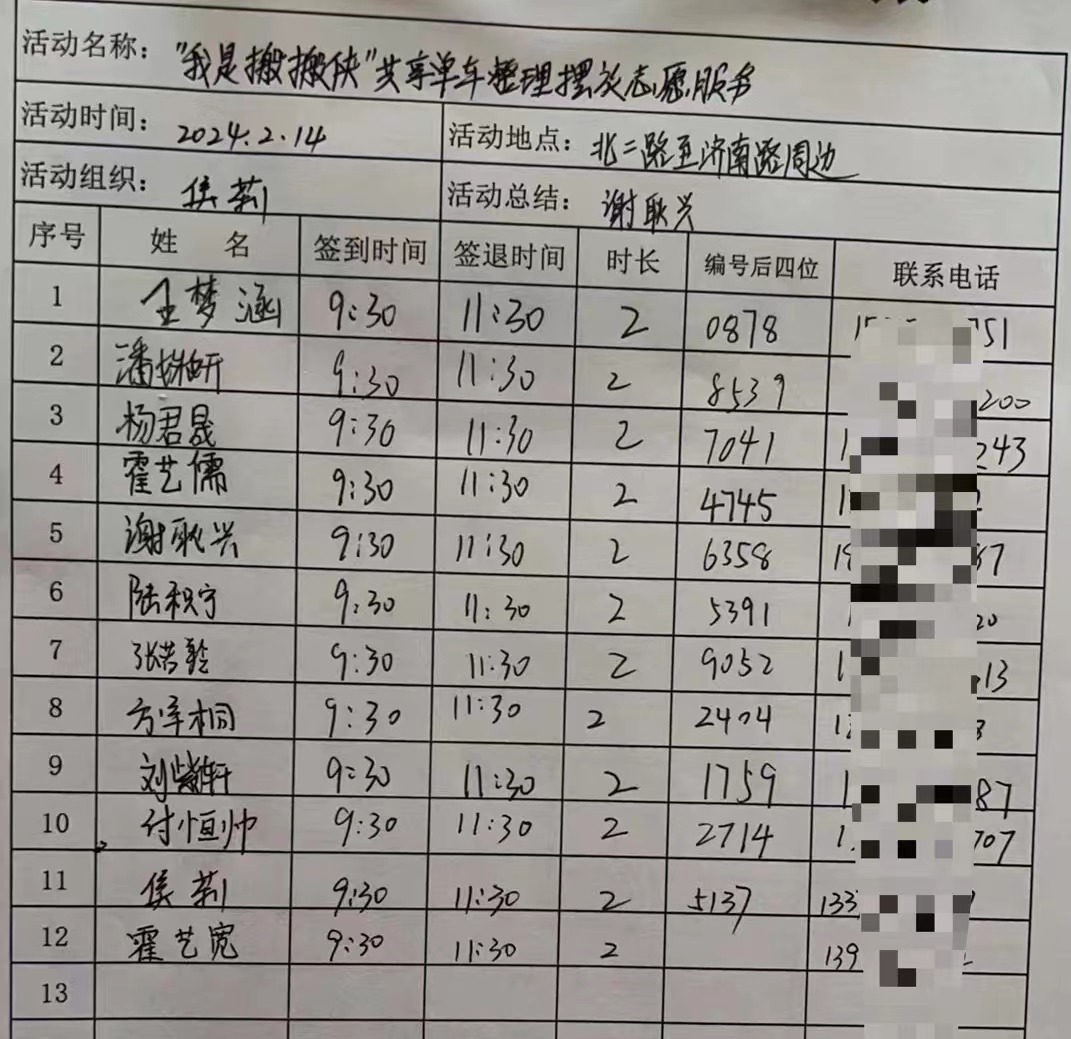 活动名称："我是搬搬侠"共享单车整理摆放志愿服务
活动时间：2024.2.14 活动地点：北二路至济南路周边
活动组织：侯莉 活动总结：谢耿兴
序号 姓名 签到时间 签退时间 时长 编号后四位 联系电话
1 王梦涵 9:30 11:30 2 0878 751
2 潘姝妍 9:30 11:30 2 8539 200
3 杨君晟 9:30 11:30 2 7041 1 243
4 霍艺儒 9:30 11:30 2 4745 1
5 谢耿兴 9:30 11:30 2 6358 18 37
6 陆积宁 9:30 11:30 2 5391 20
7 张浩乾 9:30 11:30 2 9052 1 13
8 方宰桐 9:30 11:30 2 2404 1
9 刘紫轩 9:30 11:30 2 1759 1 87
10 付恒帅 9:30 11:30 2 2714 1 707
11 侯莉 9:30 11:30 2 5137 133
12 霍艺宽 9:30 11:30 2 139
13